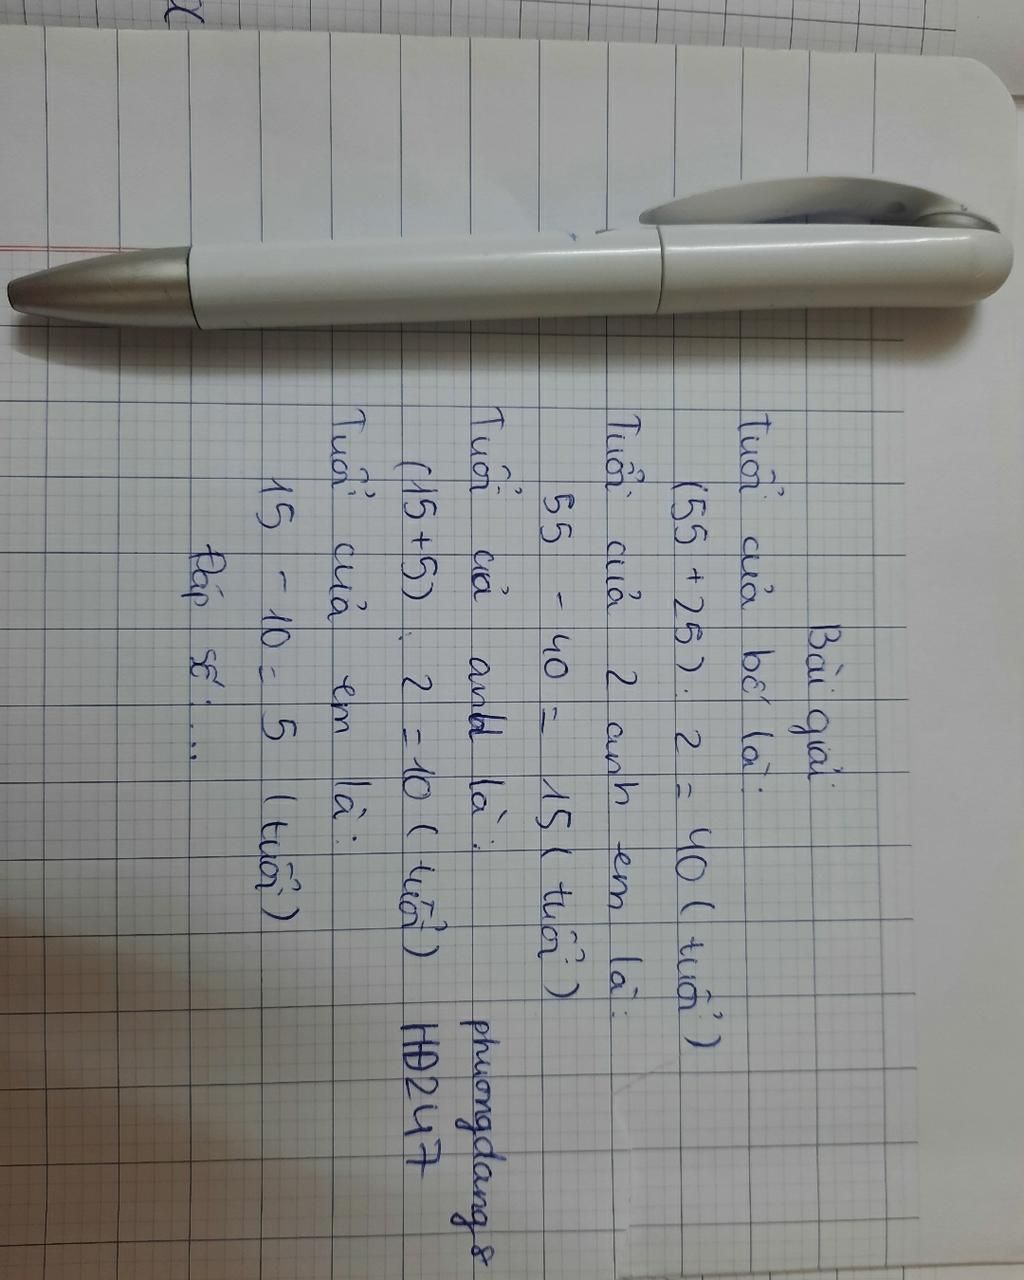 Bài giải
Tuổi của bố là:
(55 + 25) : 2 = 40 (tuổi)
Tuổi của 2 anh em là:
55 - 40 = 15 (tuổi)
Tuổi củ anh là:
(15 + 5) : 2 = 10 (tuổi)
Tuổi của em là:
15 - 10 = 5 (tuổi)
Đáp số: ...
phuongdang8
HĐ247